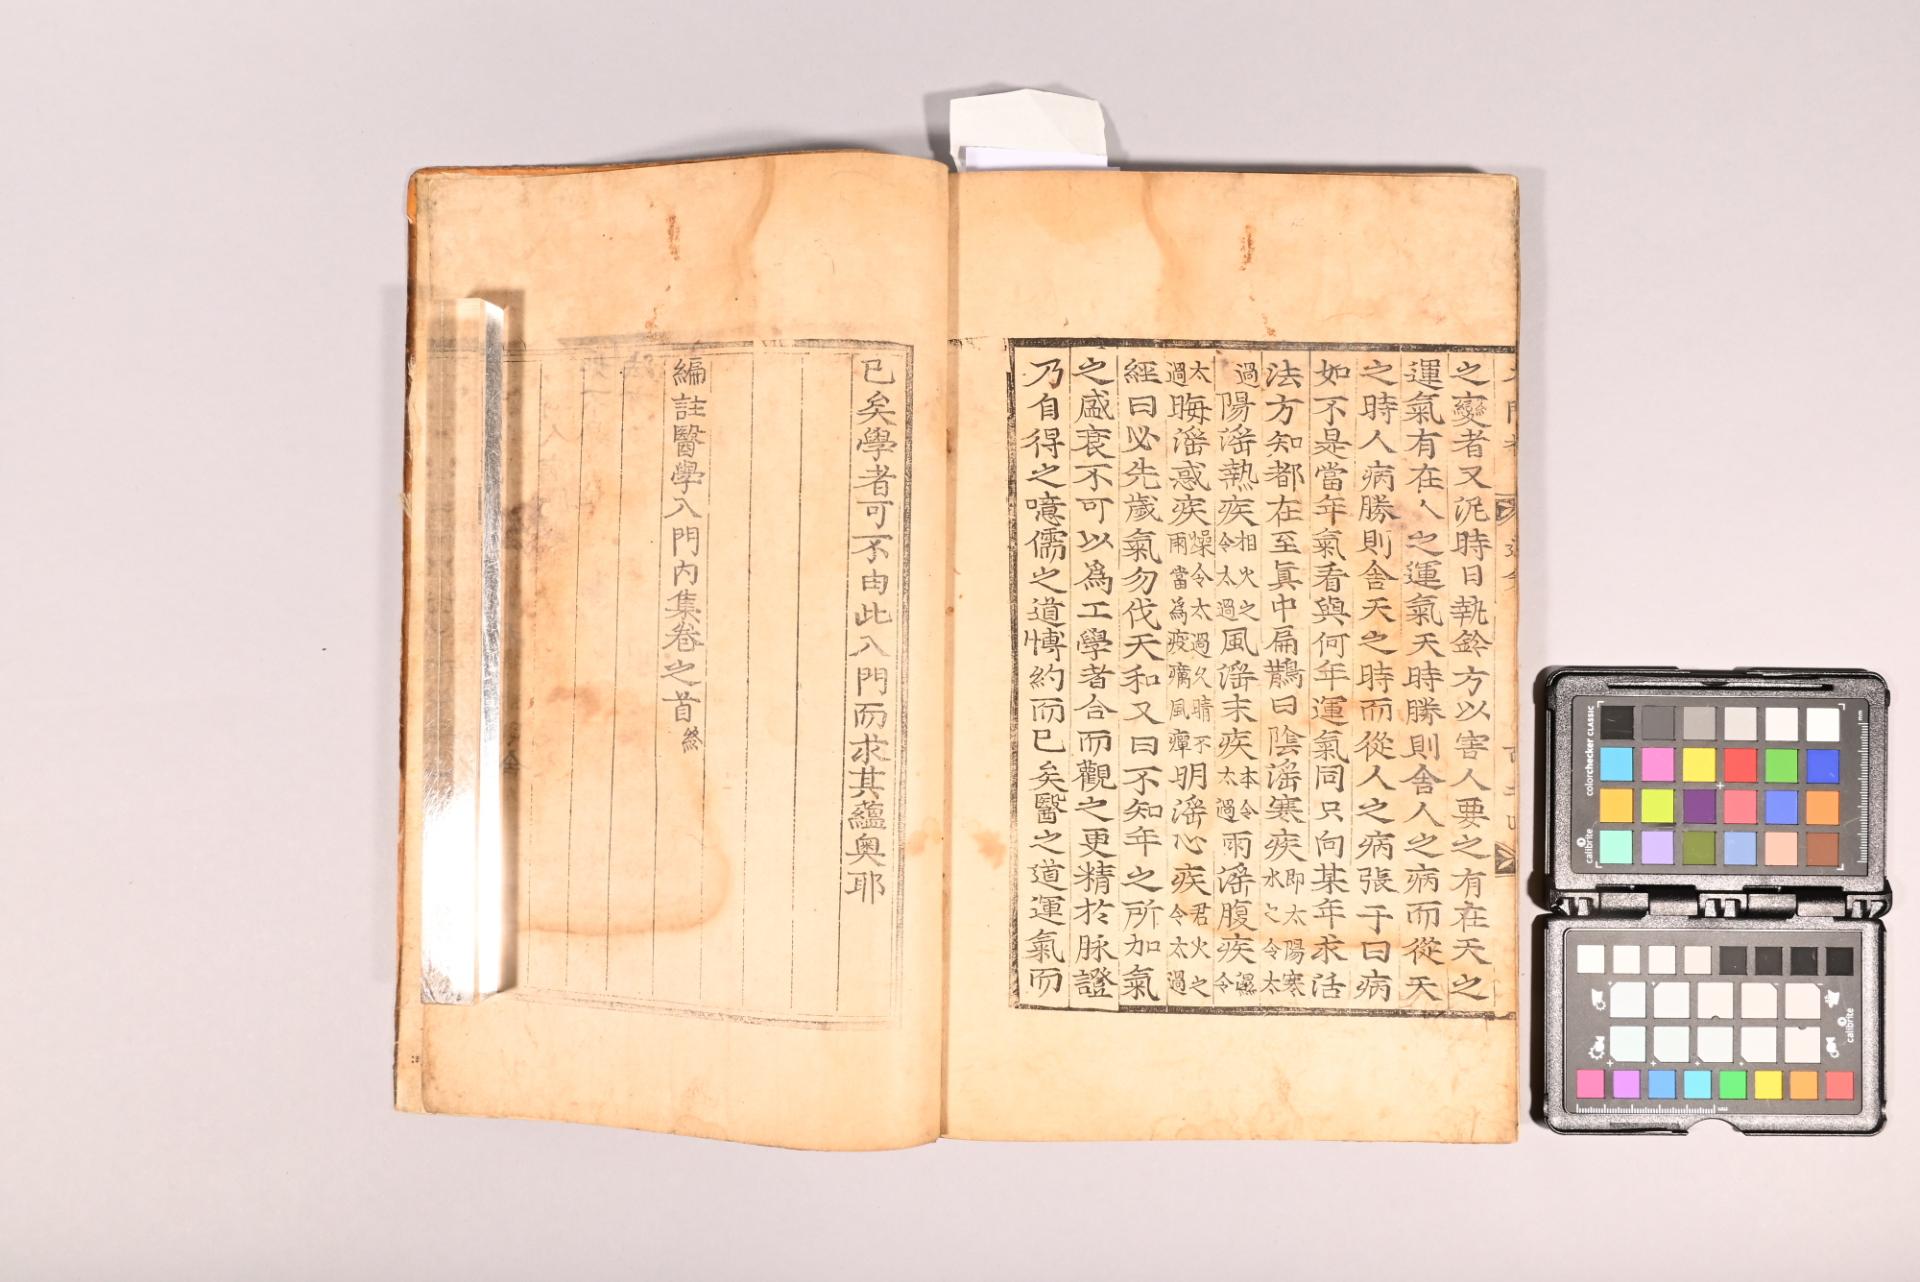 之變者又泥時日執鈐方以害人要之有在天之
運氣有在人之運氣天時勝則舍人之病而從天
之時人病勝則舍天之時而從人之病張子曰病
如不是當年氣看與何年運氣同只向某年求活
法方知都在至眞中扁鵲曰陰淫寒疾即太陽寒水之令太
過陽淫熱疾相火之令太過風淫末疾本令太過雨淫腹疾濕令
太過晦淫惑疾燥令太過久晴不雨當為疫癘風癉明淫心疾君火之令太過
經曰必先歲氣勿伐天和又曰不知年之所加氣
之盛衰不可以爲工學者合而觀之更精於脉證
乃自得之噫儒之道博約而已矣醫之道運氣而
已矣學者可不由此入門而求其蘊奥耶
編註醫學入門內集卷之首終
colorchecker CLASSIC
calibrite
calibrite